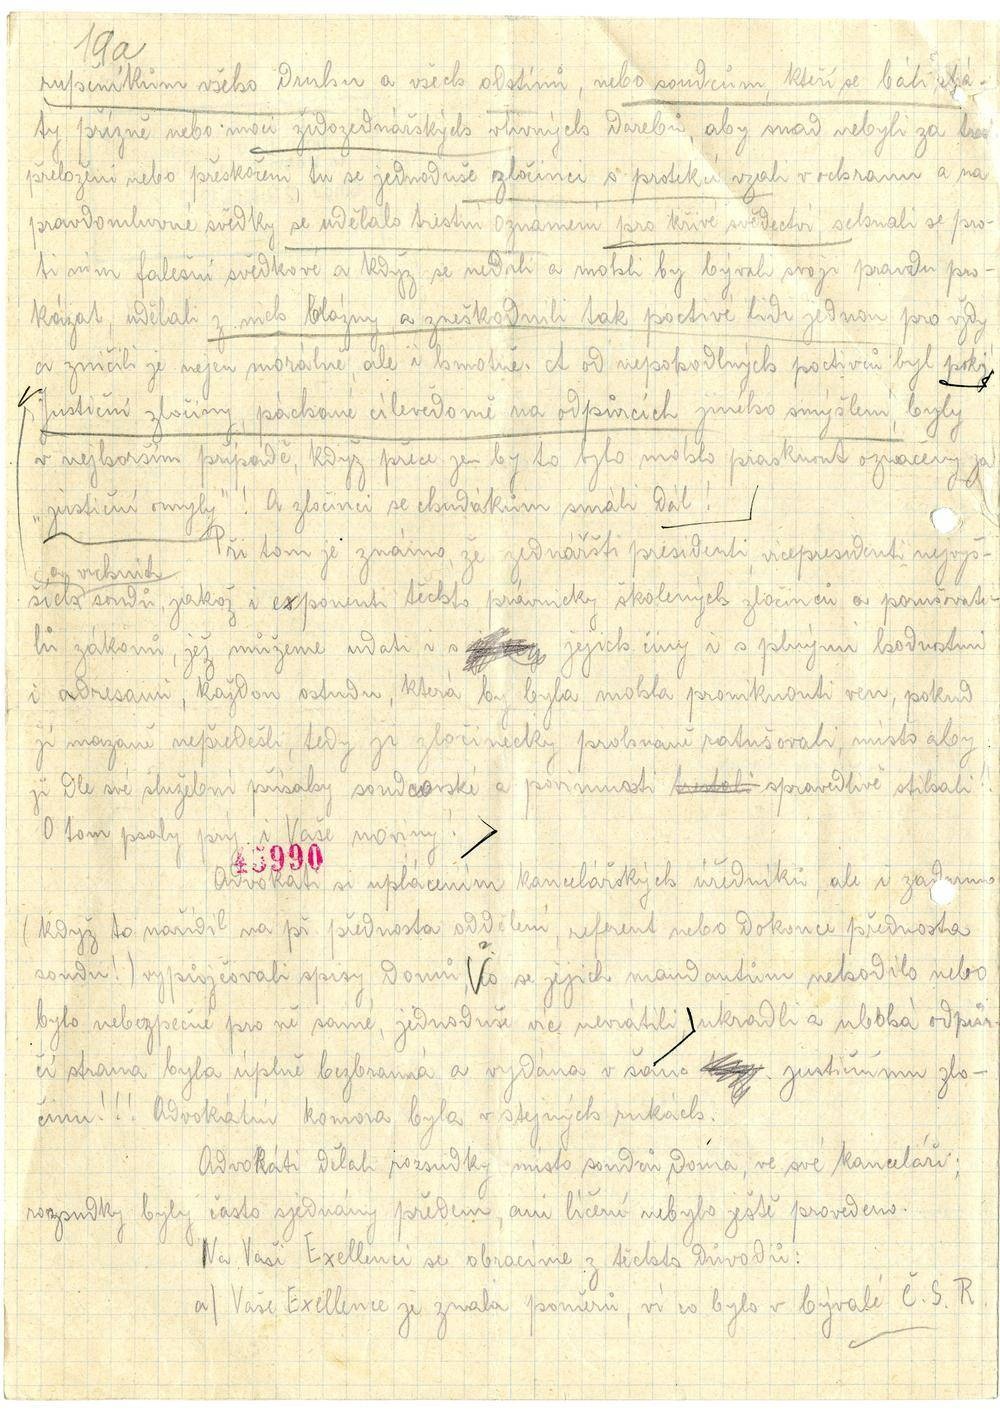 19a
rupčníkům všeho druhu a všech odstínů, nebo soudcům, kteří se báli ztrá-
ty přízně nebo moci židozednářských vlivných darebů, aby snad nebyli za
přeloženi nebo přeskočeni, tu se jednoduše zločinci s protekcí vzali v ochranu a na
pravdomluvné svědky se udělalo trestní oznámení pro křivé svědectví, sehnali se pro-
ti nim falešní svědkové a když se nedali a mohli by bývali svoji pravdu pro-
kázat, udělali z nich blázny a zneškodnili tak poctivé lidi jednou pro vždy
a zničili je nejen morálně, ale i hmotně. A od nepohodlných poctivců byl pokoj
Justiční zločiny, páchané cílevědomě na odpůrcích jiného smýšlení, byly
v nejhorším případě, když přece jen by to bylo mohlo prasknout označeny za
"justiční omyly"! A zločinci se chudákům smáli dál!
Při tom je známo, že zednářští presidenti, vicepresidenti nejvyš-
a vrchních
ších soudů, jakož i exponenti těchto právnicky školených zločinců a porušovate-
lů zákonů, jež můžeme udati i s jejich činy i s plnými hodnostmi
i adresami, každou ostudu, která by byla mohla proniknouti ven, pokud
jí mazaně nepředešli, tedy ji zločinecky prohnaně ututlávali, místo aby
ji dle své služební přísahy soudcovské a povinnosti spravedlivě stíhali!!
O tom psaly prý i Vaše noviny!
45990
Advokáti si uplácením kancelářských úředníků, ale i zadarmo
(když to nařídil na př. přednosta oddělení, referent nebo dokonce přednosta
soudu!) vypůjčovali spisy domů, co se jejich mandantům nehodilo nebo
bylo nebezpečné pro ně samé, jednoduše víc nevrátili, ukradli a ubohá odpůr-
čí strana byla úplně bezbranná a vydána v šanc justičnímu zlo-
činu!!! Advokátní komora byla v stejných rukách.
Advokáti dělali rozsudky místo soudců doma, ve své kanceláři;
rozsudky byly často sjednány předem, ani líčení nebylo ještě provedeno.
Na Vaši Exellenci se obracíme z těchto důvodů:
a) Vaše Exellence je znalá poměrů, ví co bylo v bývalé Č.S.R.